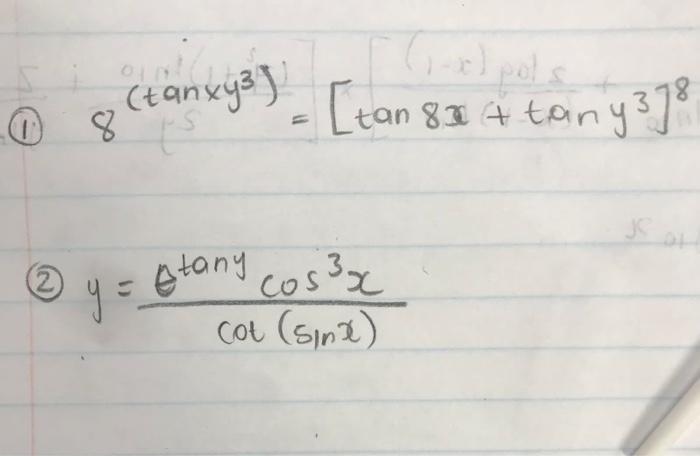 ① 8^(tanxy³) = [tan 8x + tan y³]⁸
② y = e^tany cos³x / cot (sinx)